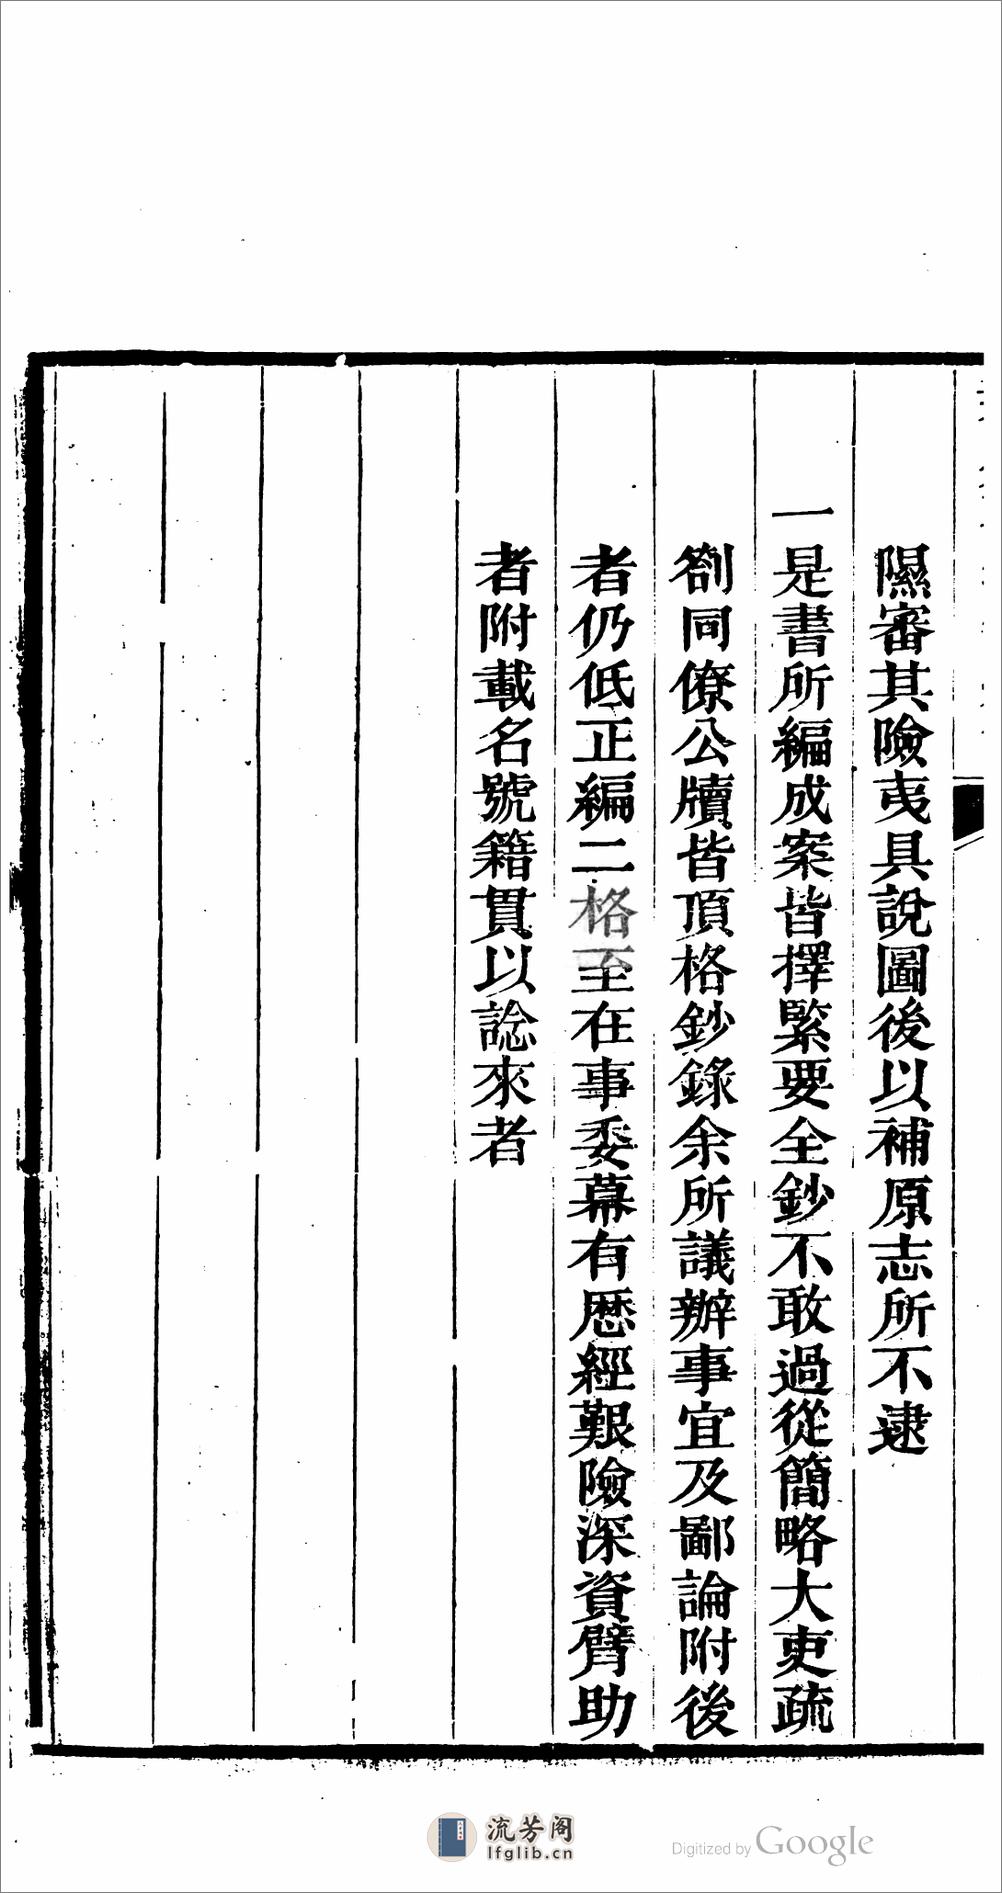 隰審其險夷具說圖後以補原志所不逮
一是書所編成案皆擇緊要全鈔不敢過從簡略大吏疏
劄同僚公牘皆頂格鈔錄余所議辦事宜及鄙論附後
者仍低正編二格至在事委幕有歷經艱險深資臂助
者附載名號籍貫以諗來者
流芳阁
lfglib.cn
Digitized by Google